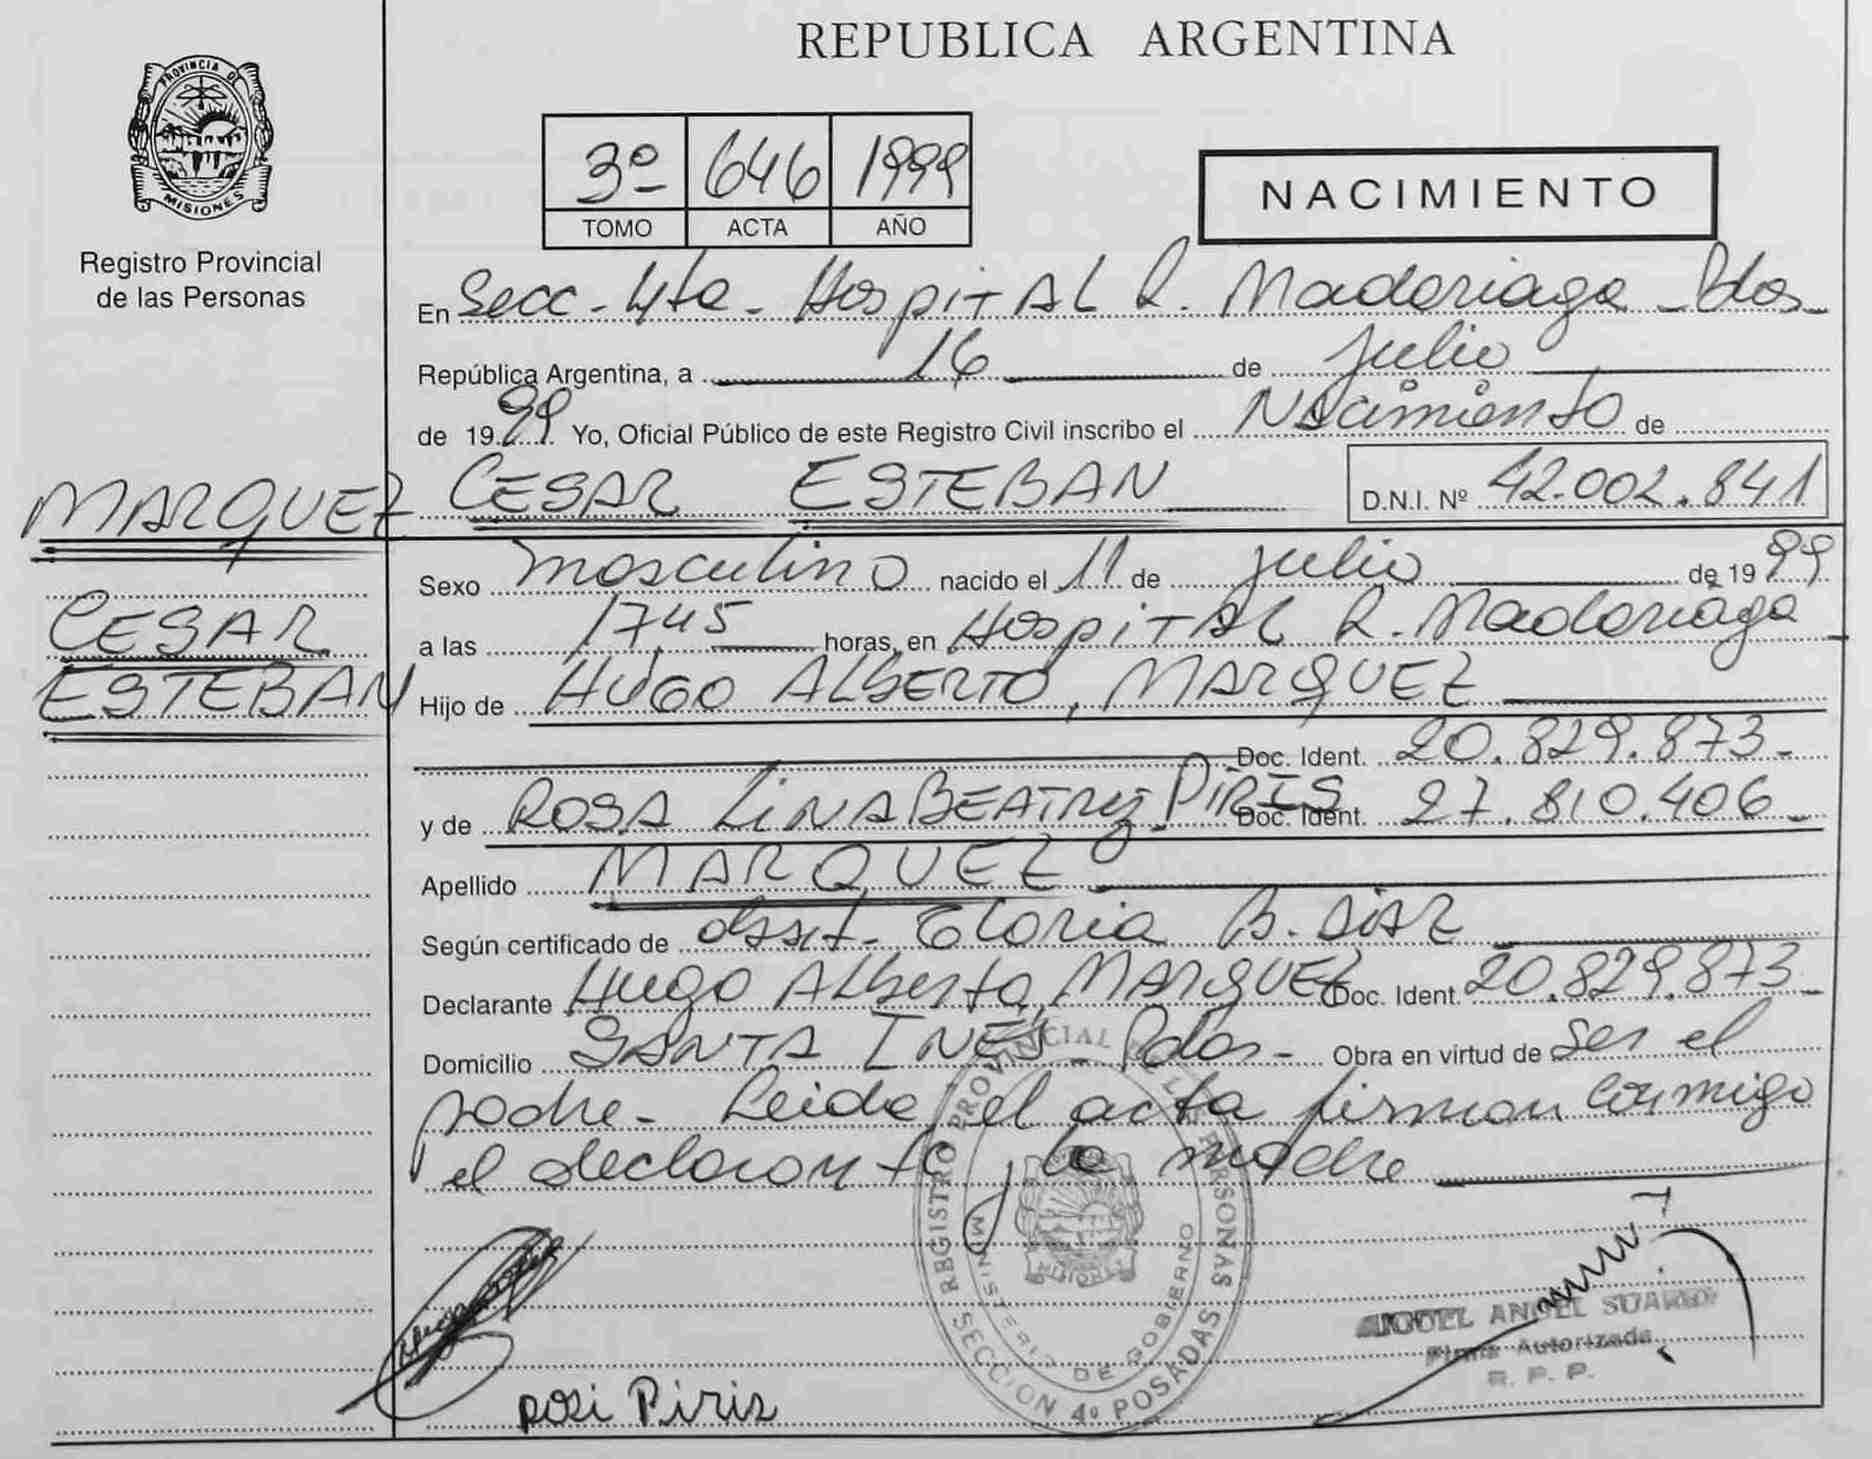 REPUBLICA ARGENTINA
PROVINCIA DE
MISIONES
Registro Provincial
de las Personas
3º 646 1999
TOMO ACTA AÑO
NACIMIENTO
En Secc - 4ta - Hospital R. Madariaga - Pdas -
República Argentina, a 16 de Julio
de 1999 Yo, Oficial Público de este Registro Civil inscribo el Nacimiento de
MARQUEZ CESAR ESTEBAN D.N.I. Nº 42.002.841
Sexo masculino nacido el 11 de Julio de 1999
CESAR
a las 17,45 horas, en Hospital R. Madariaga -
ESTEBAN
Hijo de HUGO ALBERTO, MARQUEZ
Doc. Ident. 20.829.873 -
y de ROSA LINA BEATRIZ PIRIS Doc. Ident. 27.810.406 -
Apellido MARQUEZ
Según certificado de Gloria B. Diaz
Declarante Hugo Alberto MARQUEZ Doc. Ident. 20.829.873 -
Domicilio SANTA INÉS - Pdas - Obra en virtud de ser el
padre - Leida el acta firman conmigo
el declarante y la madre
REGISTRO PROVINCIAL DE LAS PERSONAS
MINISTERIO DE GOBIERNO
MISIONES
SECCION 4º POSADAS
MIGUEL ANGEL SUAREZ
Firma Autorizada
R. P. P.
rosi Piris